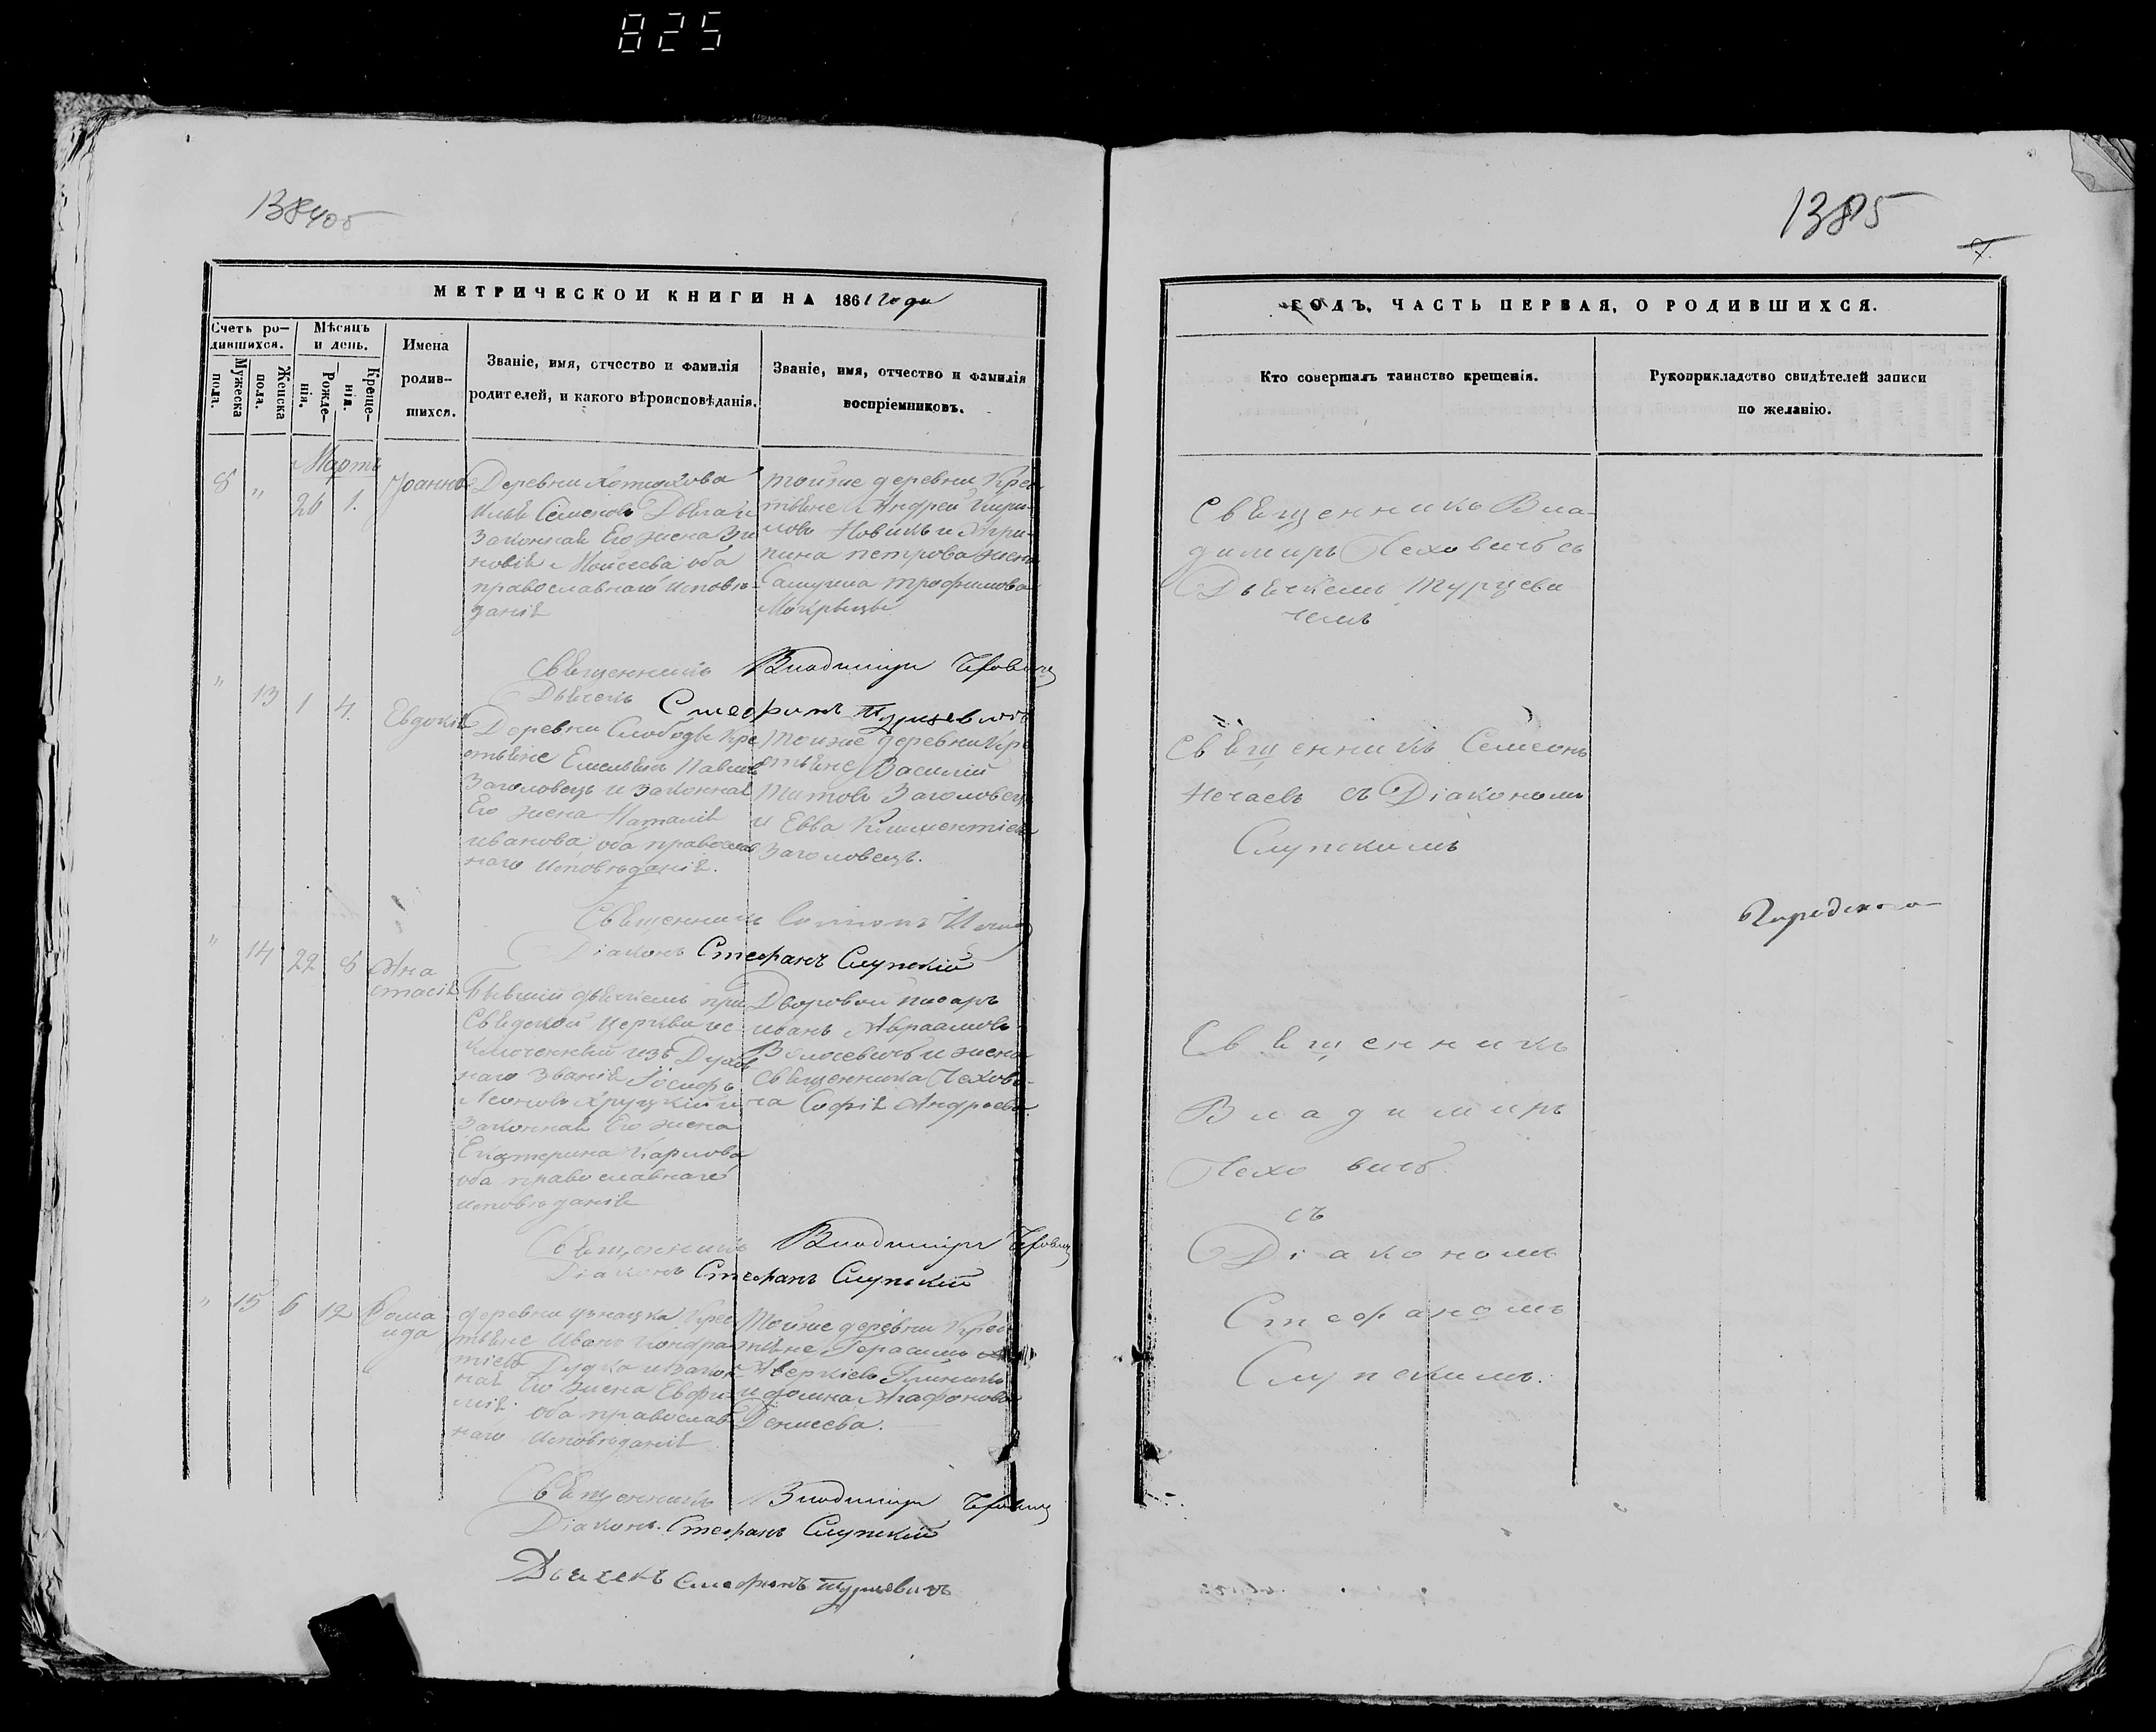 825
1384об
МЕТРИЧЕСКОЙ КНИГИ НА 1861 года
Счетъ ро-
дившихся.
Мѣсяцъ
и день.
Имена
родив-
шихся.
Званіе, имя, отчество и фамилія
родителей, и какого вѣроисповѣданія.
Званіе, имя, отчество и фамилія
воспріемниковъ.
Мужеска
пола.
Женска
пола.
Рожде-
нія.
Креще-
нія.
Мартъ
8 " 26 1. Іоаннъ
Деревни
Илья Семеновъ
Законная Его жена Зи
новія Моисеева оба
православнаго исповѣ-
данія
тойже деревни Крес
тьяне Андрей Кири-
ловъ Новикъ и Агри-
пина петрова жена
Самуила трофимова
Священникъ Владиміръ
Дьячекъ Стефанъ Турцевичъ
" 13 1 4. Евдокія
Деревни Слободы Кре
стьяне Емельянъ Павловъ
Заголовецъ и Законная
Его жена Наталія
иванова оба православ
наго исповѣданія.
Тойже деревни Кре
стьяне Василій
Титовъ Заголовецъ
и Евва Климентіева
Заголовецъ.
Священникъ
Діаконъ Стефанъ Слупскій
" 14 22 8 Ана
стасія
Бывшій дьячкемъ при
церкви ис-
ключенный изъ Духов
наго Званія Іосифъ
Леоновъ Хруцкій и
Законная Его жена
Екатерина Карлова
оба православнаго
исповѣданія
Дворовой писарь
иванъ Авраамовъ
и жена
священника Чехови-
ча Софія Андреева
Священникъ Владиміръ
Діаконъ Стефанъ Слупскій
" 15 6 12 Фома
ида
деревни Крес
тьяне Иванъ Кондра
тіевъ Гудка и закон
ная Его жена Евфи
мія оба православ
наго исповѣданія
Тойже деревни Крес
тьяне Герасимъ
Аверкіевъ
и Агафонова
Денисева.
Священникъ Владиміръ
Діаконъ Стефанъ Слупскій
Дьячекъ Стефанъ Турцевичъ
1385
7.
ГОДЪ, ЧАСТЬ ПЕРВАЯ, О РОДИВШИХСЯ.
Кто совершалъ таинство крещенія.
Рукоприкладство свидѣтелей записи
по желанію.
Священникъ Вла-
димиръ Чеховичъ съ
Дьячкемъ Турцеви
чемъ
Священникъ Семеонъ
Нечаевъ съ Діакономъ
Слупскимъ
Священникъ
Владимиръ
Чехо вичъ
съ
Діакономъ
Стефаномъ
Слупскимъ.